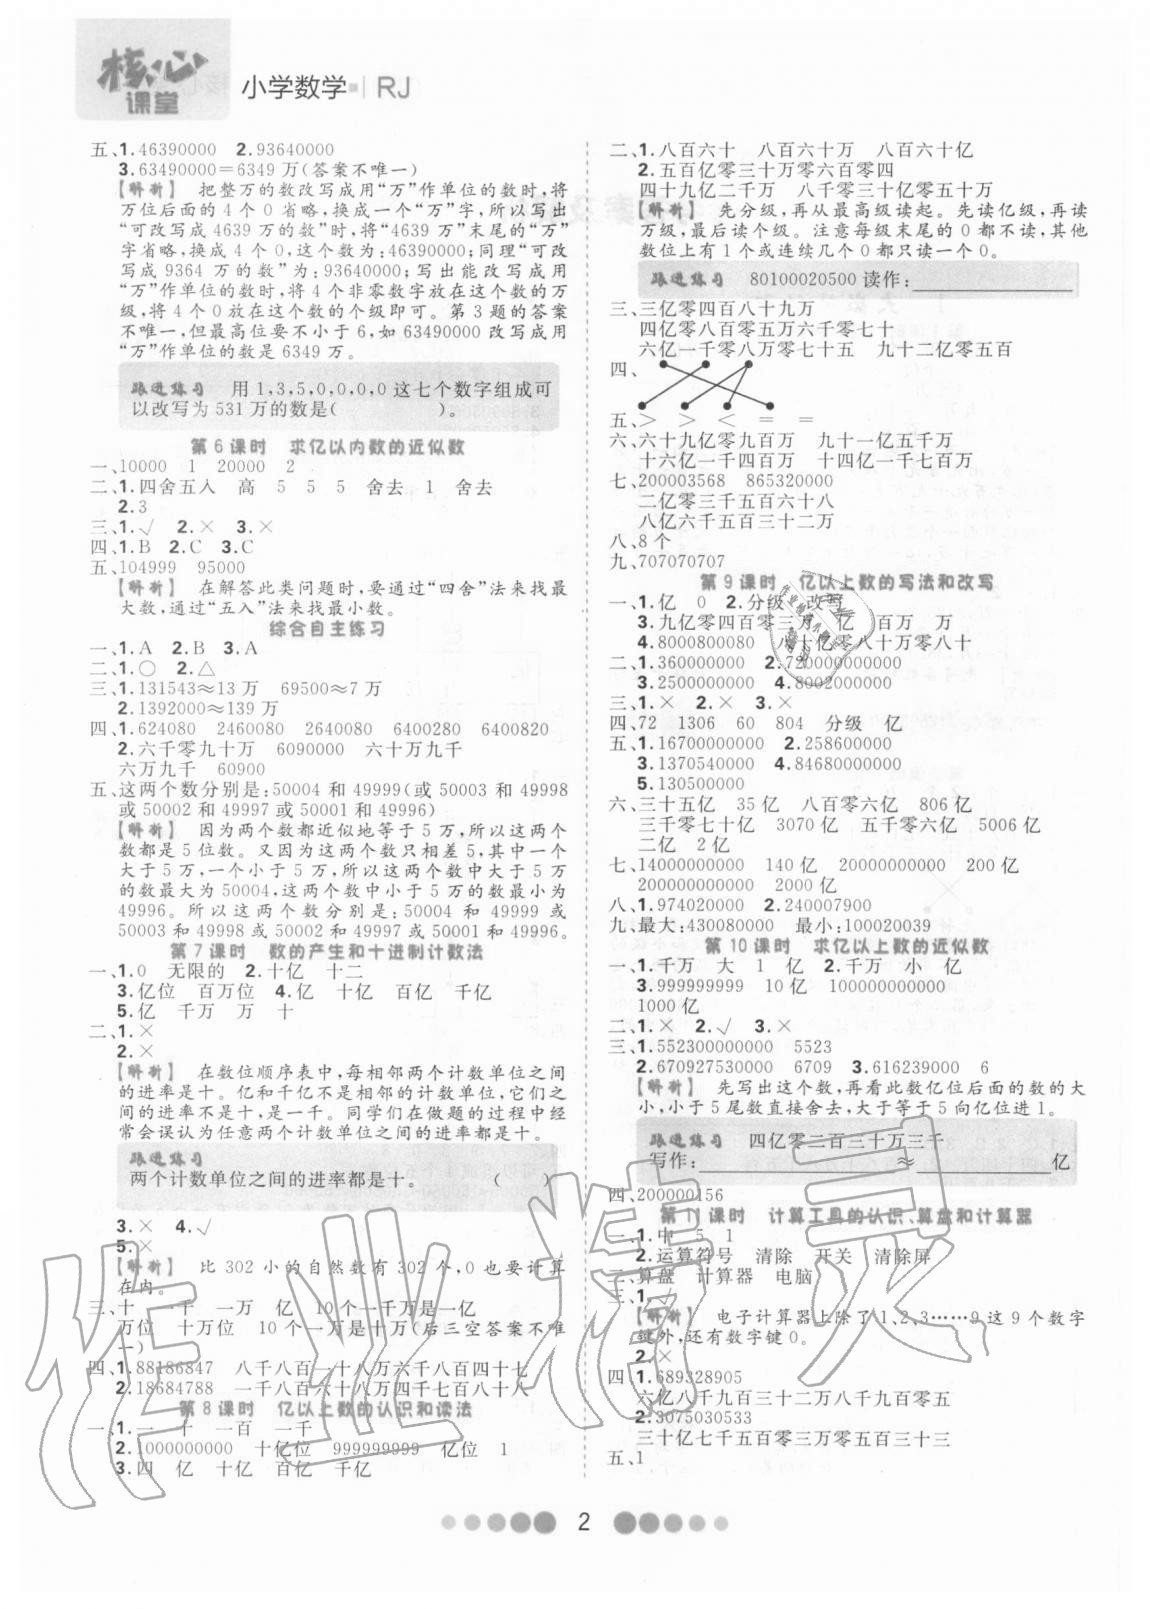 核心课堂
小学数学 RJ
五、1.46390000 2.93640000
3.63490000=6349 万(答案不唯一)
【解析】 把整万的数改写成用“万”作单位的数时,将
万位后面的 4 个 0 省略,换成一个“万”字,所以写出
“可改写成 4639 万的数”时,将“4639 万”末尾的“万”
字省略,换成 4 个 0,这个数为:46390000;同理“可改
写成 9364 万的数”为:93640000;写出能改写成用
“万”作单位的数时,将 4 个非零数字放在这个数的万
级,将 4 个 0 放在这个数的个级即可。第 3 题的答案
不唯一,但最高位要不小于 6,如 63490000 改写成用
“万”作单位的数是 6349 万。
跟进练习 用 1,3,5,0,0,0,0 这七个数字组成可
以改写为 531 万的数是( )。
第 6 课时 求亿以内数的近似数
一、10000 1 20000 2
二、1.四舍五入 高 5 5 5 舍去 1 舍去
2.3
三、1.√ 2.× 3.×
四、1.B 2.C 3.C
五、104999 95000
【解析】 在解答此类问题时,要通过“四舍”法来找最
大数,通过“五入”法来找最小数。
综合自主练习
一、1.A 2.B 3.A
二、1.○ 2.△
三、1.131543≈13 万 69500≈7 万
2.1392000≈139 万
四、1.624080 2460080 2640080 6400280 6400820
2.六千零九十万 6090000 六十万九千
六万九千 60900
五、这两个数分别是:50004 和 49999(或 50003 和 49998
或 50002 和 49997 或 50001 和 49996)
【解析】 因为两个数都近似地等于 5 万,所以这两个
数都是 5 位数。又因为这两个数只相差 5,其中一个
大于 5 万,一个小于 5 万,所以这两个数中大于 5 万
的数最大为 50004,这两个数中小于 5 万的数最小为
49996。所以这两个数分别是:50004 和 49999 或
50003 和 49998 或 50002 和 49997 或 50001 和 49996。
第 7 课时 数的产生和十进制计数法
一、1.0 无限的 2.十亿 十二
3.亿位 百万位 4.亿 十亿 百亿 千亿
5.亿 千万 万 十
二、1.×
2.×
【解析】 在数位顺序表中,每相邻两个计数单位之间
的进率是十。亿和千亿不是相邻的计数单位,它们之
间的进率不是十,是一千。同学们在做题的过程中经
常会误认为任意两个计数单位之间的进率都是十。
跟进练习
两个计数单位之间的进率都是十。 ( )
3.× 4.√
5.×
【解析】 比 302 小的自然数有 302 个,0 也要计算
在内。
三、十 一千 一万 亿 10 个一千万是一亿
万位 十万位 10 个一万是十万(后三空答案不唯
一)
四、1.88186847 八千八百一十八万六千八百四十七
2.18684788 一千八百六十八万四千七百八十八
第 8 课时 亿以上数的认识和读法
一、1.一 十 一百 一千
2.1000000000 十亿位 999999999 亿位 1
3.四 亿 十亿 百亿 千亿
二、1.八百六十 八百六十万 八百六十亿
2.五百亿零三十万零六百零四
四十九亿二千万 八千零三十亿零五十万
【解析】 先分级,再从最高级读起。先读亿级,再读
万级,最后读个级。注意每级末尾的 0 都不读,其他
数位上有 1 个或连续几个 0 都只读一个 0。
跟进练习 80100020500 读作:
三、三亿零四百八十九万
四亿零八百零五万六千零七十
六亿一千零八万零七十五 九十二亿零五百
四、
五、> > < = =
六、六十九亿零九百万 九十一亿五千万
十六亿一千四百万 十四亿一千六百万
七、200003568 865320000
二亿零三千五百六十八
八亿六千五百三十二万
八、8 个
九、707070707
第 9 课时 亿以上数的写法和改写
一、1.亿 0 2.分级 改写
3.九亿零四百零三万 亿 百万 万
4.8000800080 八十亿零八十万零八十
二、1.360000000 2.720000000000
3.2500000000 4.8002000000
三、1.× 2.× 3.×
四、72 1306 60 804 分级 亿
五、1.16700000000 2.258600000
3.1370540000 4.84680000000
5.130500000
六、三十五亿 35 亿 八百零六亿 806 亿
三千零七十亿 3070 亿 五千零六亿 5006 亿
二亿 2 亿
七、14000000000 140 亿 20000000000 200 亿
200000000000 2000 亿
八、1.974020000 2.240007900
九、最大:430080000 最小:100020039
第 10 课时 求亿以上数的近似数
一、1.千万 大 1 亿 2.千万 小 亿
3.999999999 10 亿 100000000000
1000 亿
二、1.× 2.√ 3.×
三、1.552300000000 5523
2.670927530000 6709 3.616239000 6
【解析】 先写出这个数,再看此数亿位后面的数的大
小,小于 5 尾数直接舍去,大于等于 5 向亿位进 1。
跟进练习 四亿零三百三十万三千
写作: ≈ 亿
四、200000156
第 11 课时 计算工具的认识、算盘和计算器
一、1.中 5 1
2.运算符号 清除 开关 清除屏
二、算盘 计算器 电脑
三、1.√
【解析】 电子计算器上除了 1、2、3……9 这 9 个数字
键外,还有数字键 0。
2.×
四、1.689328905
六亿八千九百三十二万八千九百零五
2.3075030533
三十亿七千五百零三万零五百三十三
五、1
2
作业精灵